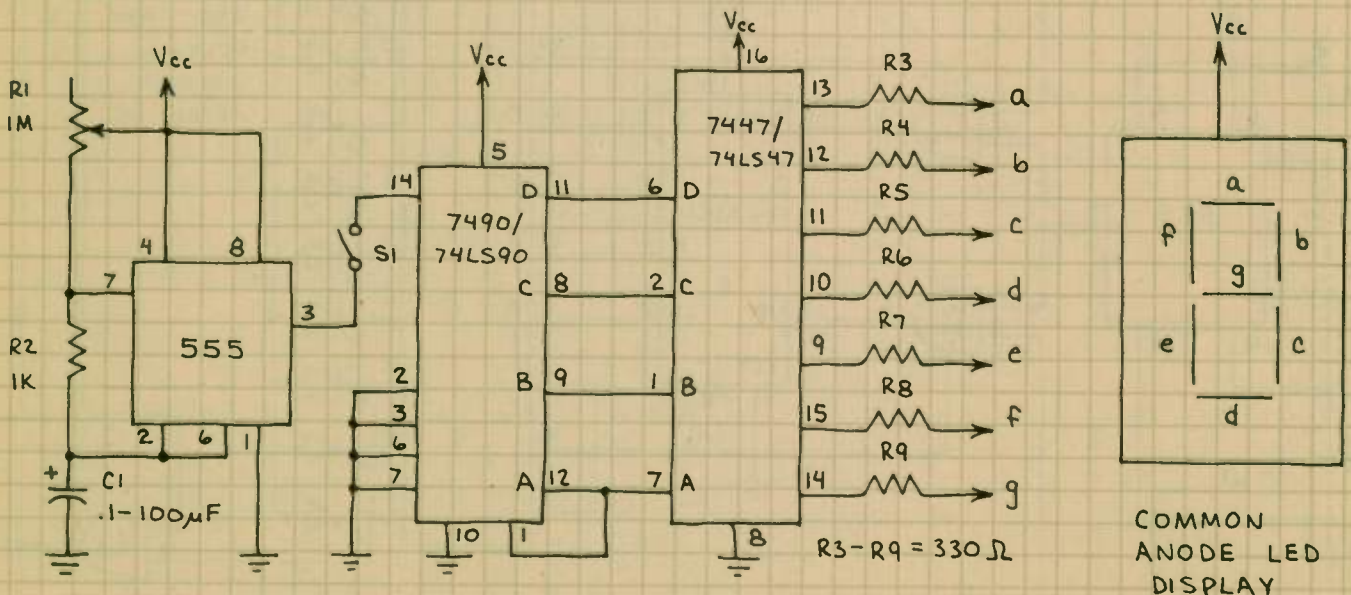 Vcc
R1
1M
4
8
7
555
3
R2
1K
2
6
1
+
C1
.1-100µF
S1
Vcc
5
14
7490/
74LS90
D
11
C
8
B
9
A
12
2
3
6
7
10
1
Vcc
16
7447/
74LS47
6
D
2
C
1
B
7
A
8
13
R3
a
12
R4
b
11
R5
c
10
R6
d
9
R7
e
15
R8
f
14
R9
g
R3-R9 = 330 Ω
Vcc
a
f
b
g
e
c
d
COMMON
ANODE LED
DISPLAY